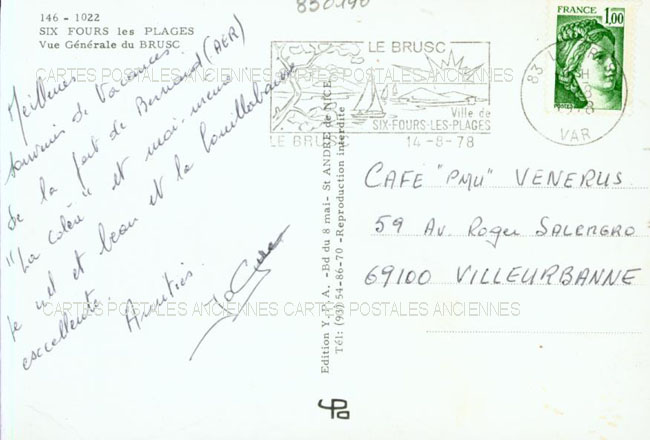 830190
146 - 1022
SIX FOURS les PLAGES
Vue Générale du BRUSC
Meilleurs
souvenirs de Vacances
de la part de Bernard (AER)
"La colère" et moi-même
le ciel et beau et la bouillabaisse
excellente. Amitiés.
LE BRUSC
Ville de
SIX-FOURS-LES-PLAGES
LE BRUSC
14-8-78
FRANCE
1,00
83
VAR
CAFE "PMU" VENERUS
59 Av. Roger SALENGRO
69100 VILLEURBANNE
Edition Y. P. A. -Bd du 8 mai- St ANDRE de NICE
Tél: (93) 54-86-70 -Reproduction interdite
CARTES POSTALES ANCIENNES CARTES POSTALES ANCIENNES
CARTES POSTALES ANCIENNES CARTES POSTALES ANCIENNES